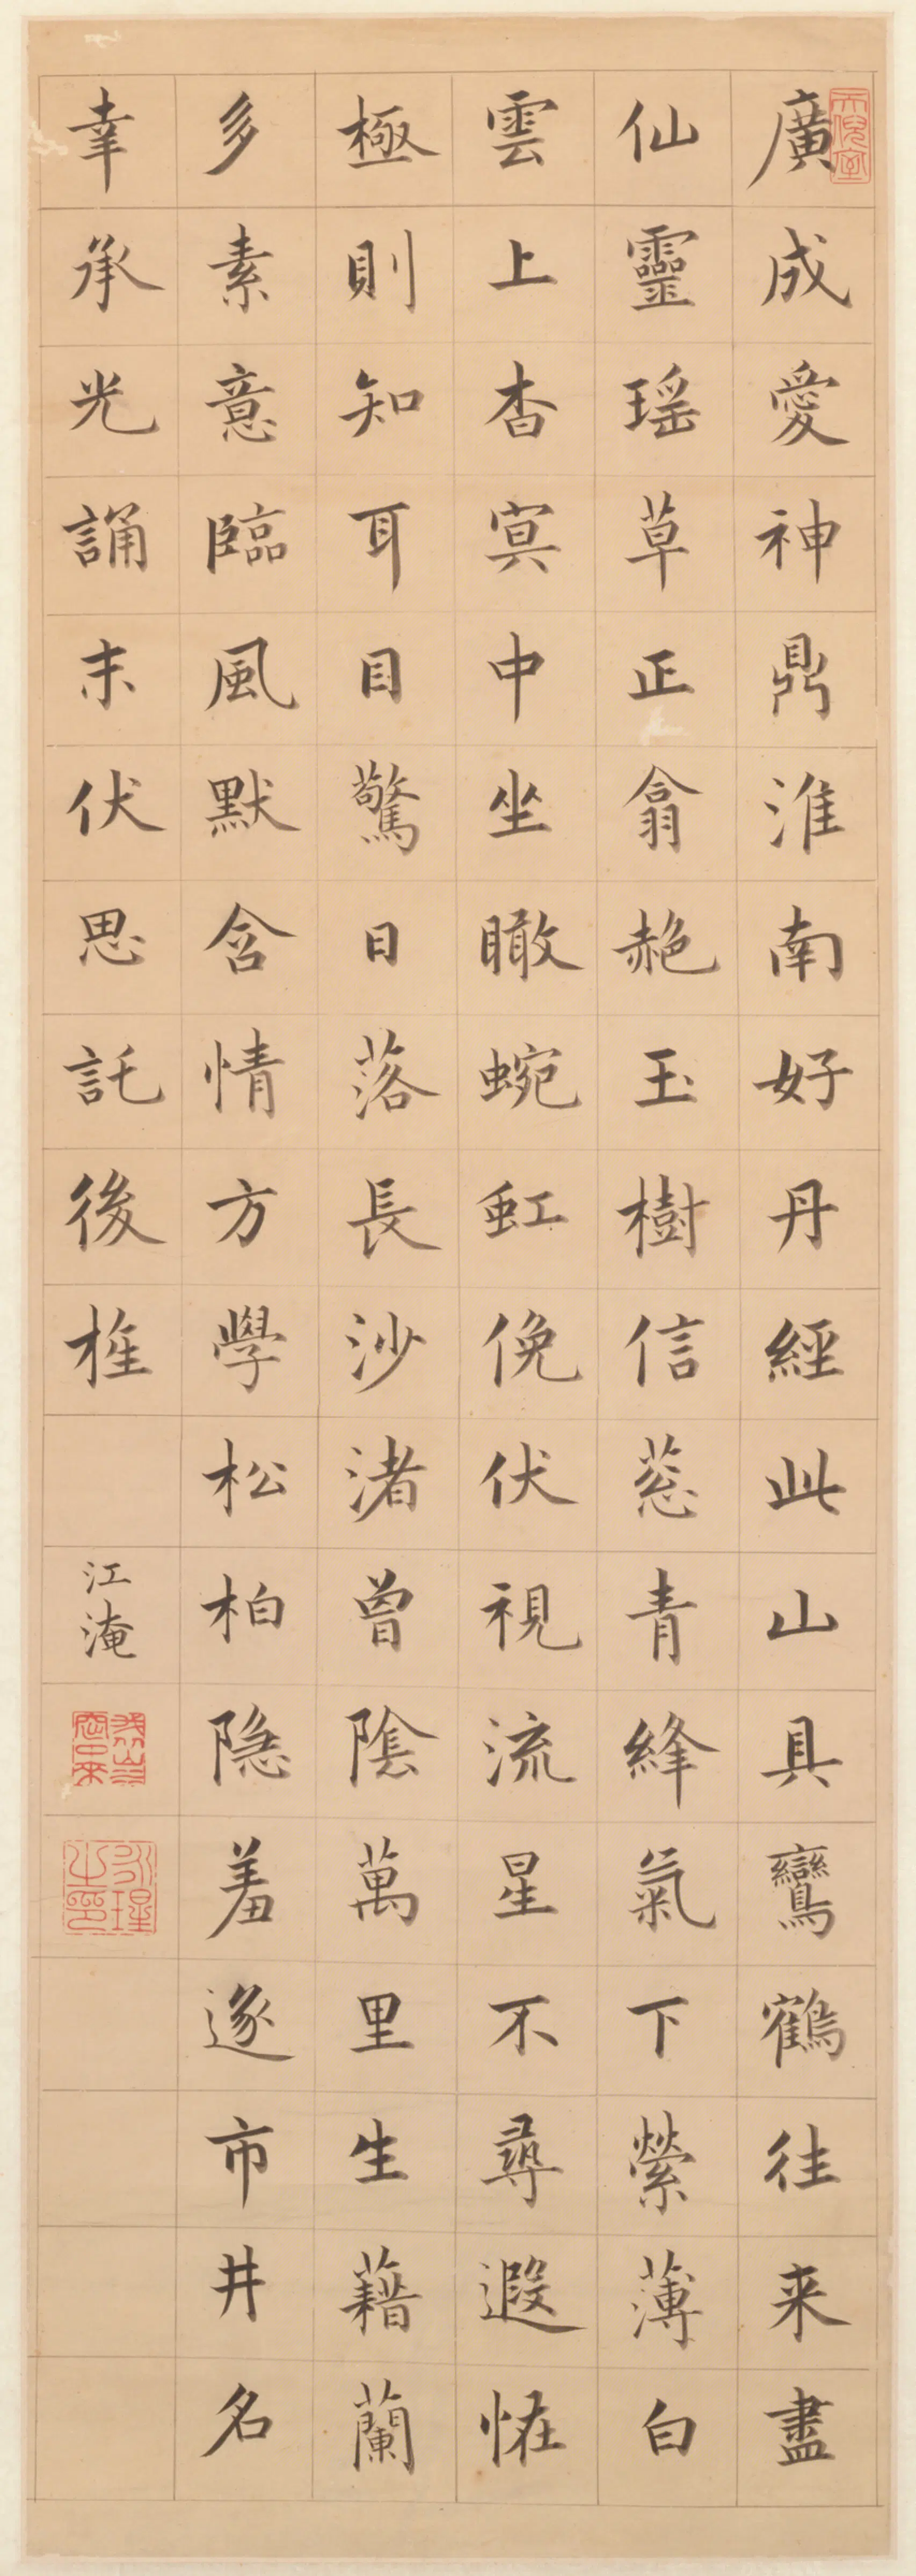 廣成愛神鼎淮南好丹經此山具鸞鶴往来盡
仙靈瑶草正翕赩玉樹信蔥青絳氣下縈薄白
雲上杳冥中坐瞰蜿虹俛伏視流星不尋遐怪
極則知耳目驚日落長沙渚曾陰萬里生藉蘭
多素意臨風默含情方學松柏隐羞逐市井名
幸承光誦末伏思託後旌
江淹
永瑆之印